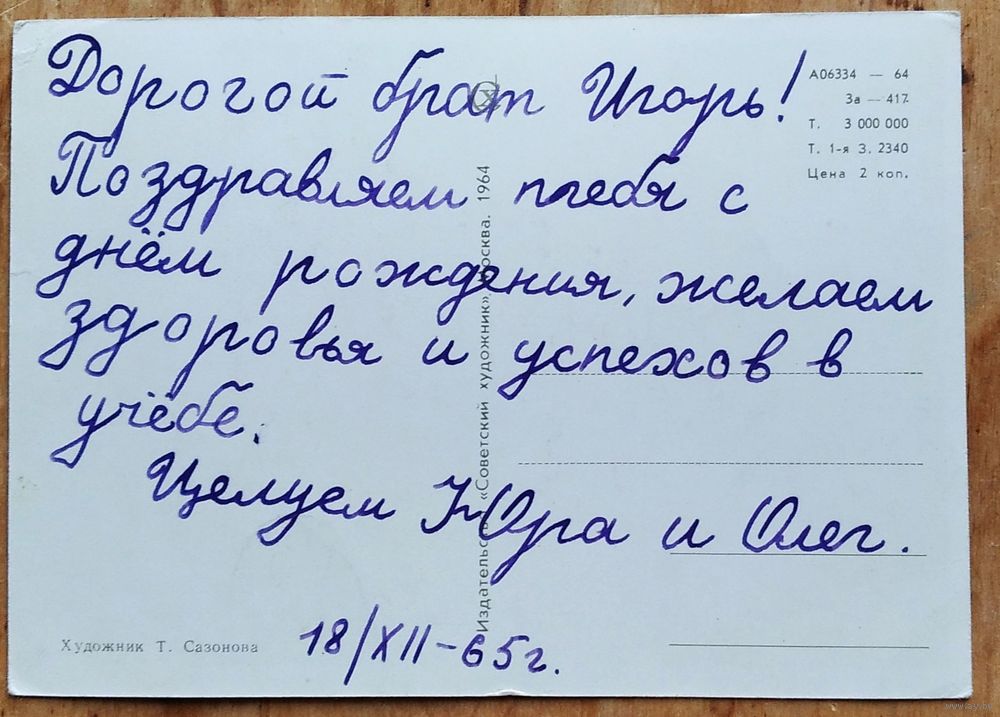 Дорогой брат Игорь!
Поздравляем тебя с
днём рождения, желаем
здоровья и успехов в
учёбе.
Целуем Юра и Олег.
18/XII-65г.
А06334 — 64
За — 417
Т. 3 000 000
Т. 1-я З. 2340
Цена 2 коп.
Издательство «Советский художник». Москва. 1964
Художник Т. Сазонова
www.ay.by